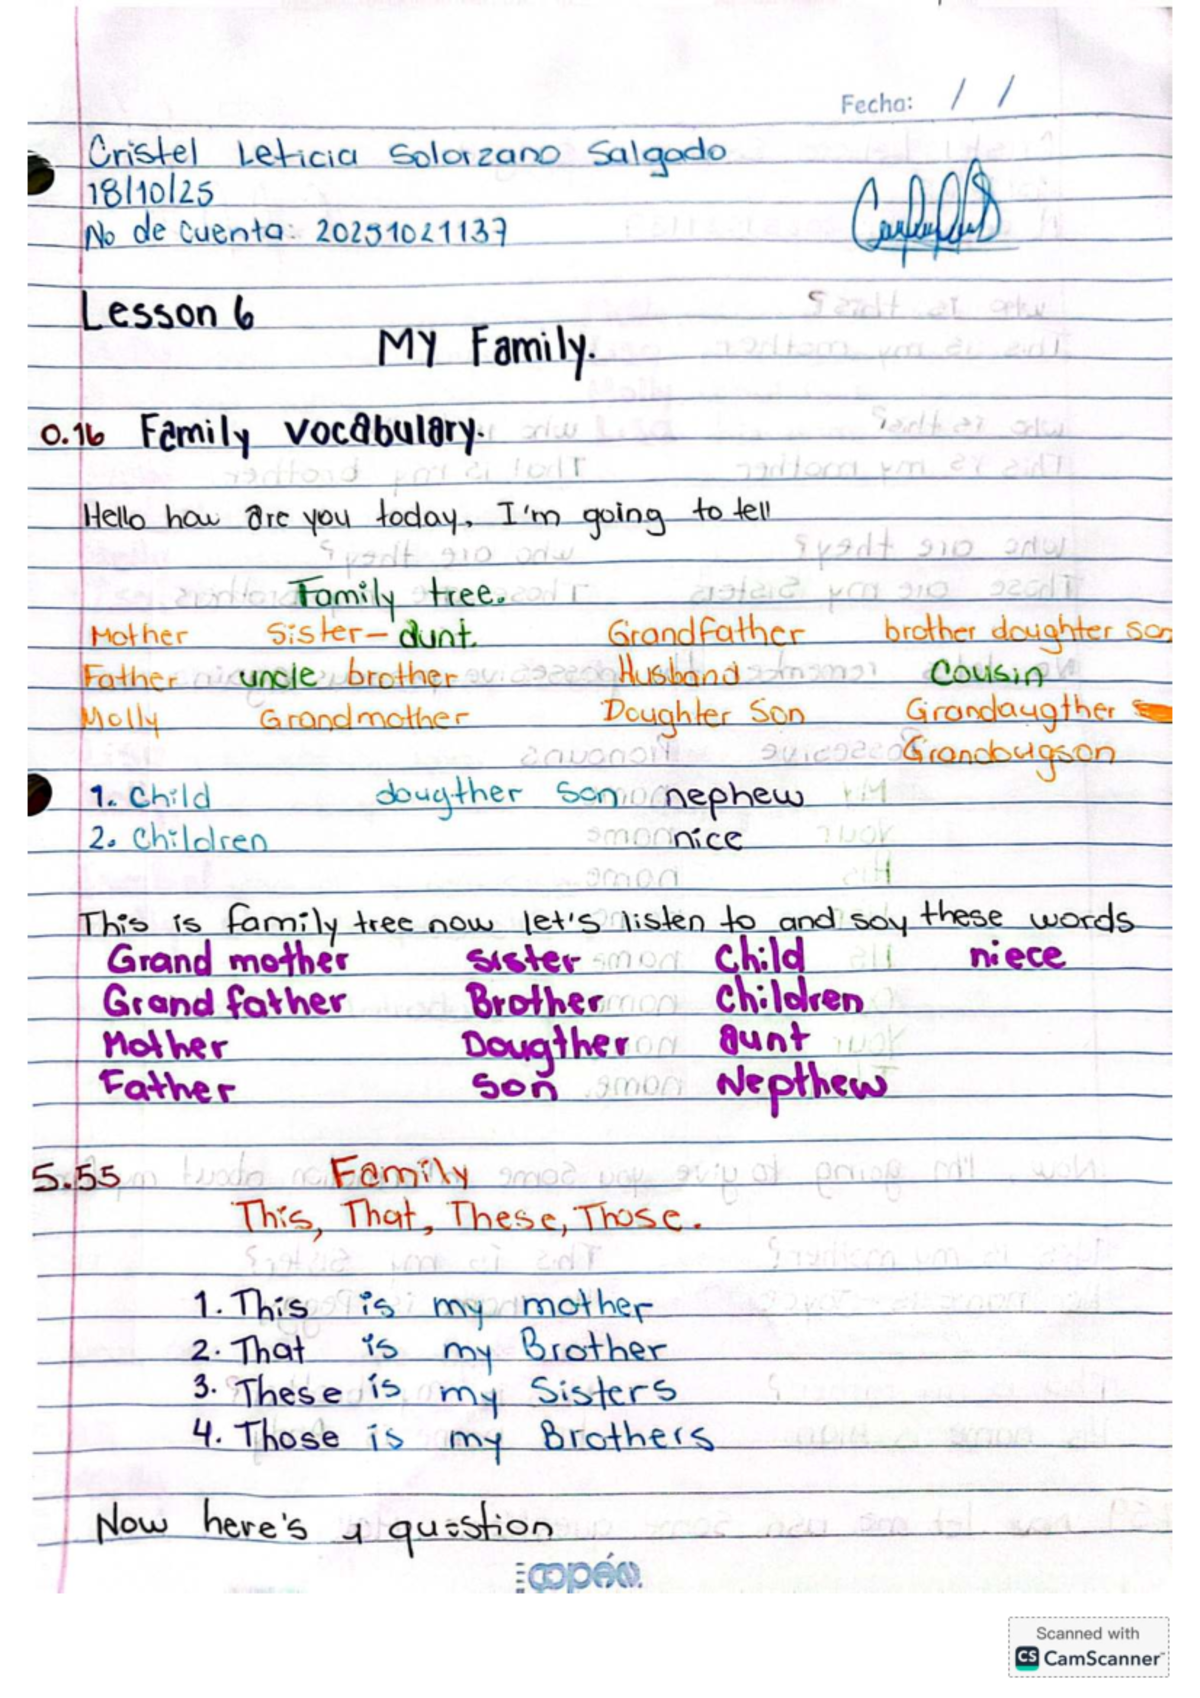 Fecha: / /
Cristel Leticia Solorzano Salgado
18/10/25
No de cuenta: 20251021137
Lesson 6
My Family.
0.16 Family vocabulary.
Hello how are you today, I'm going to tell
Family tree.
Mother Sister- aunt. Grandfather brother doughter son
Father uncle brother Husband Cousin
Molly Grandmother Doughter Son Grandaugther
Grandougson
1. Child dougther Son nephew
2. Children nice
This is family tree now let's listen to and say these words
Grand mother Sister Child niece
Grand father Brother Children
Mother Dougther aunt
Father Son Nepthew
5.55 Family
This, That, These, Those.
1. This is my mother
2. That is my Brother
3. These is my Sisters
4. Those is my Brothers
Now here's a question
copán
Scanned with
CS CamScanner